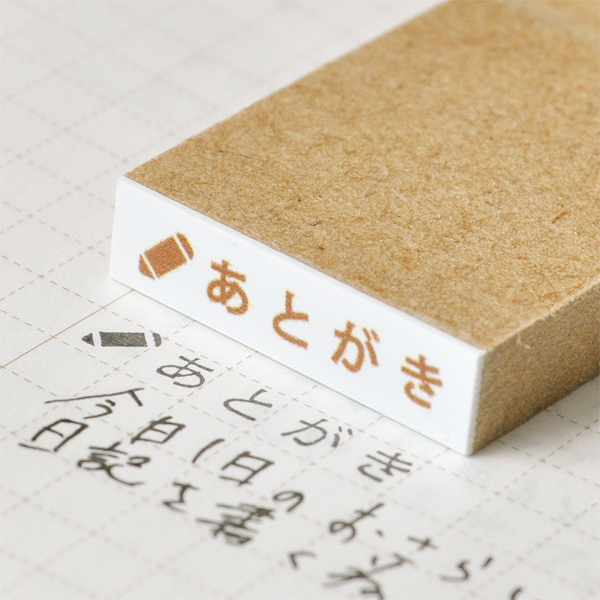 あとがき
あとがき
今日1日のおさらい
日記を書くね